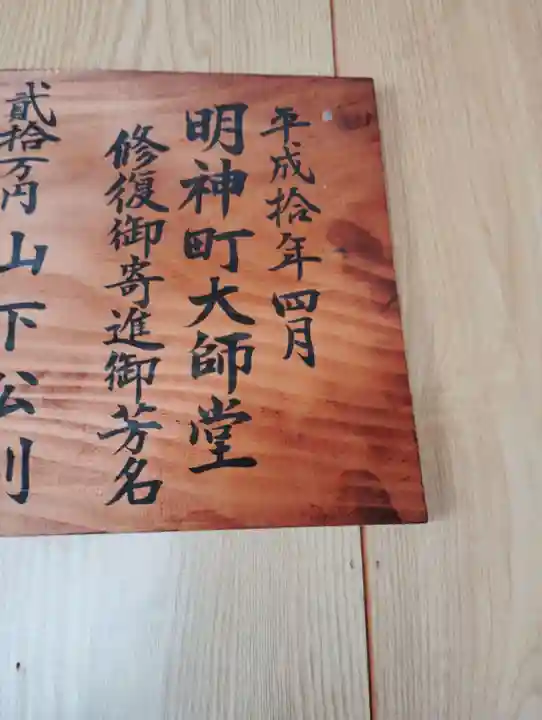 平成拾年四月
明神町大師堂
修復御寄進御芳名
貳拾万円 山下公則